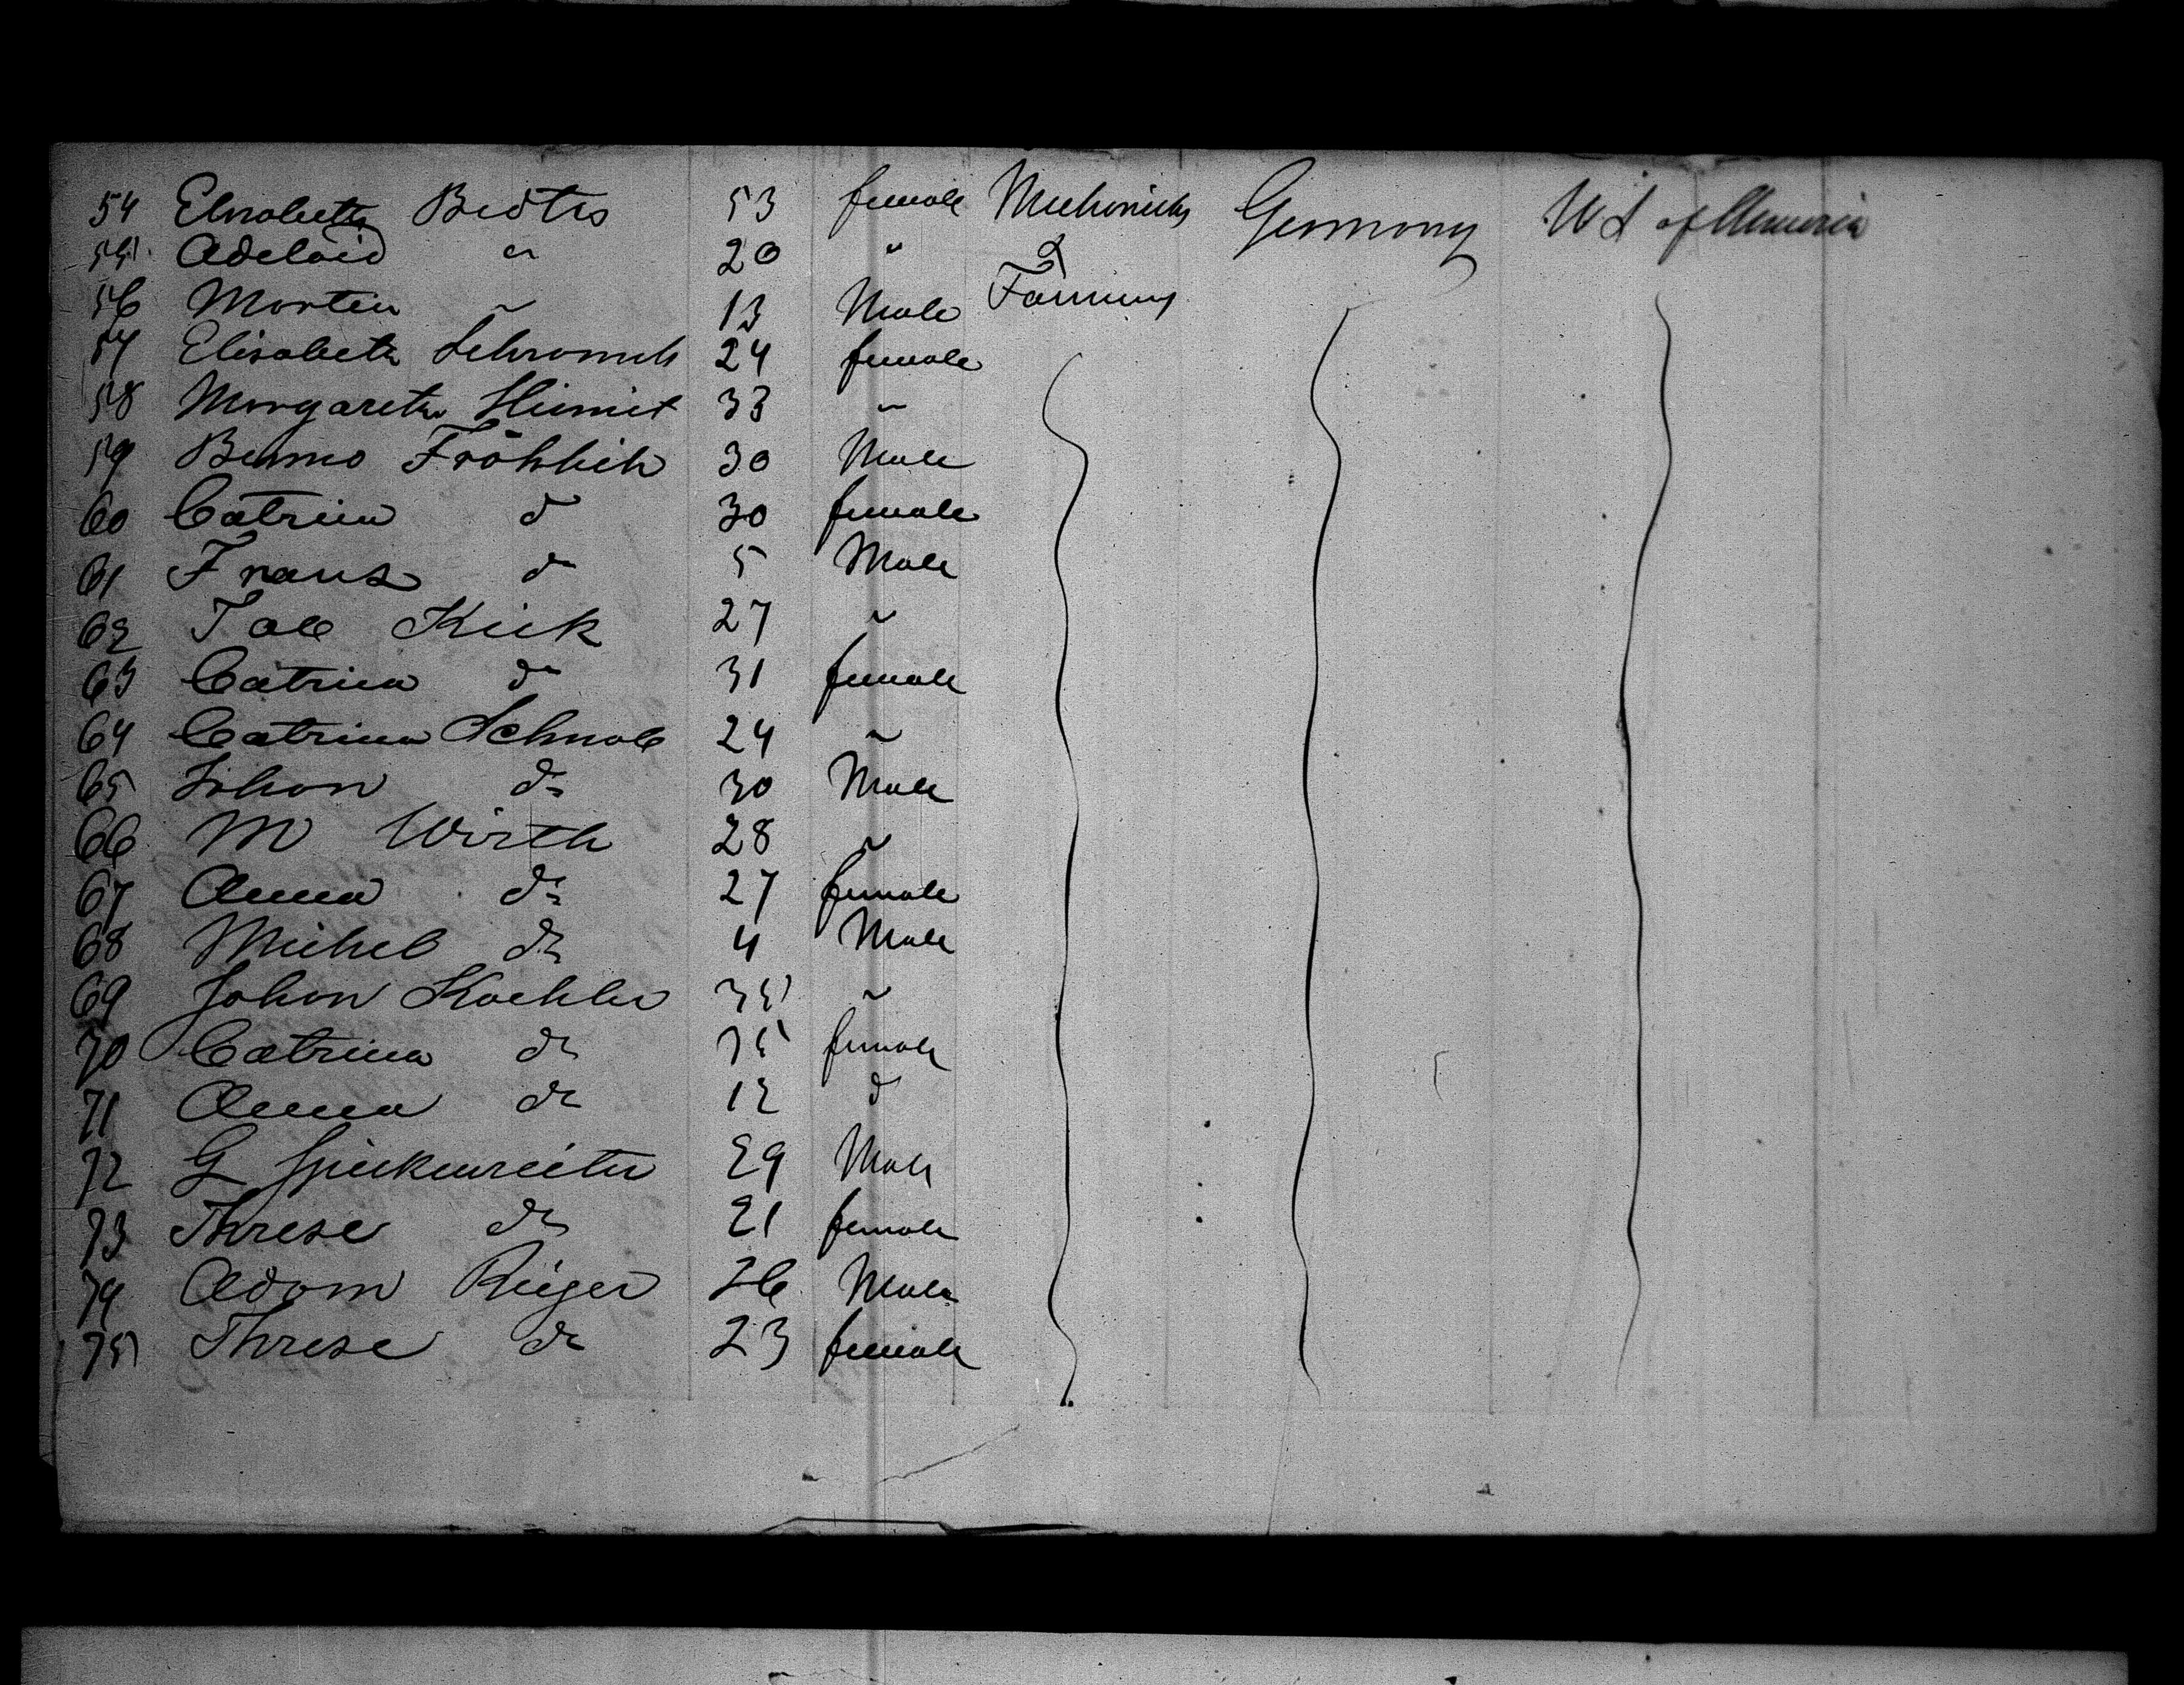 54 Elisabetha Bedtes 53 female Mechanicks Germony U S of America
55 Adelaid " 20 " &
56 Morten " 13 Male Farming
57 Elisabeth Schromch 24 female
58 Morgareta Himit 33 "
59 Benno Fröhlich 30 Male
60 Catrina d 30 female
61 Frans do 5 Male
62 Kick 27 "
63 Catrina do 31 female
64 Catrina Schnab 24 "
65 Johon do 30 Male
66 M Wirth 28 "
67 Anna do 27 female
68 Michel do 4 Male
69 Johon Koehler 35 "
70 Catrina do 35 female
71 Anna do 12 d
72 G Spickenreiter 29 Male
73 Threse do 21 female
74 Adom Rüger 26 Male
75 Threse do 23 female